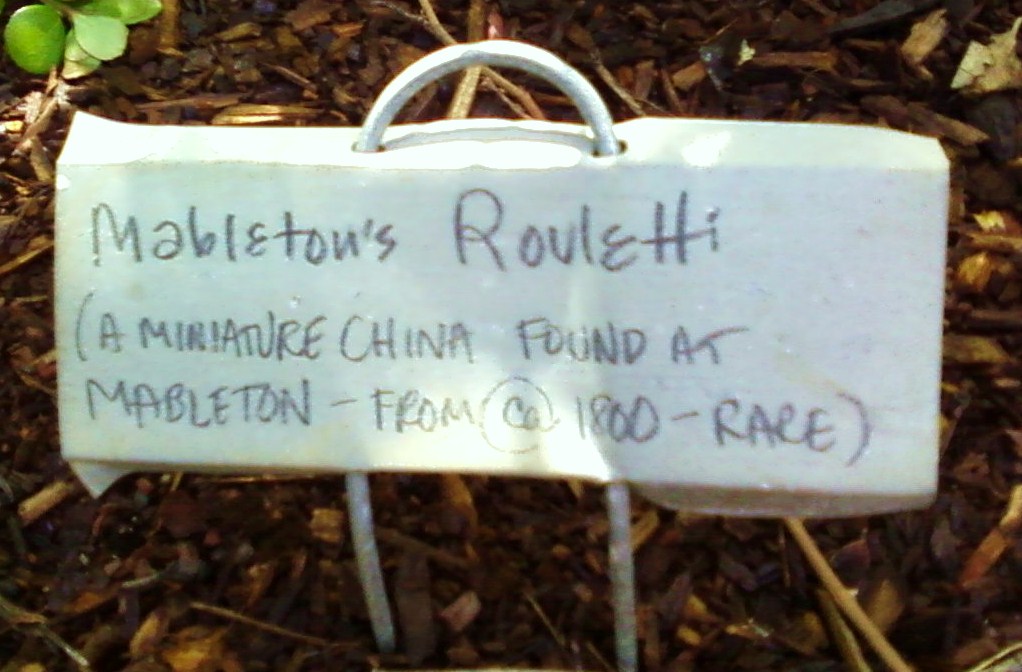 Mableton's Rouletti
(A MINIATURE CHINA FOUND AT
MABLETON - FROM Ca 1800 - RARE)